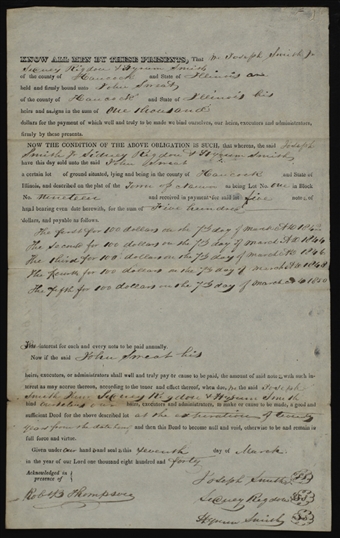 KNOW ALL MEN BY THESE PRESENTS, That We Joseph Smith Jr
Sidney Rigdon & Hyrum Smith
of the county of Hancock and State of Illinois are
held and firmly bound unto John
of the county of Hancock and State of Illinois his
heirs and assigns in the sum of one thousand
dollars for the payment of which well and truly to be made we bind ourselves, our heirs, executors and administrators,
firmly by these presents.
NOW THE CONDITION OF THE ABOVE OBLIGATION IS SUCH, that whereas, the said Joseph
Smith Jr Sidney Rigdon & Hyrum Smith,
have this day sold unto the said John
a certain lot of ground situated, lying and being in the county of Hancock and State of
Illinois, and described on the plat of the Town of being Lot No. one in Block
No. Nineteen and received in payment for said lot five notes, of
hand bearing even date herewith, for the sum of Five hundred
dollars, and payable as follows.
The first for 100 dollars on the 7th day of March AD 1842
The Second for 100 dollars on the 7th day of March AD 1844
The third for 100 dollars on the 7th day of March AD 1846
The fourth for 100 dollars on the 7th day of March AD 1848
The fifth for 100 dollars on the 7th day of March AD 1850
The interest for each and every note to be paid annually.
Now if the said John his
heirs, executors, or administrators shall well and truly pay or cause to be paid, the amount of said notes, with such in-
terest as may accrue thereon, according to the tenor and effect thereof, when due, the said Joseph
Smith Junr Sidney Rigdon & Hyrum Smith
bind our heirs, executors and administrators, to make or cause to be made, a good and
sufficient Deed for the above described lot at the expiration of twenty
years from the date and then this Bond to become null and void, otherwise to be and remain in
full force and virtue.
Given under our hand and seal this seventh day of March
in the year of our Lord one thousand eight hundred and forty
Acknowledged in
presence of
Robt B Thompson
Joseph Smith Jr
Sidney Rigdon
Hyrum Smith